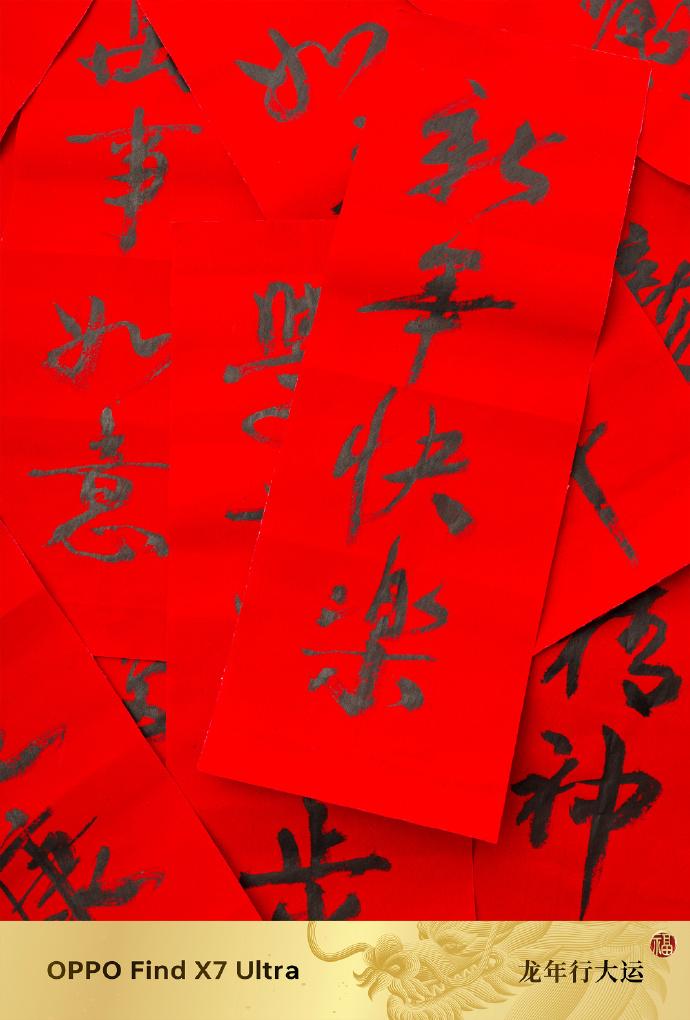 新年快楽
事如意
如
精神
步
康
OPPO Find X7 Ultra
龙年行大运
福